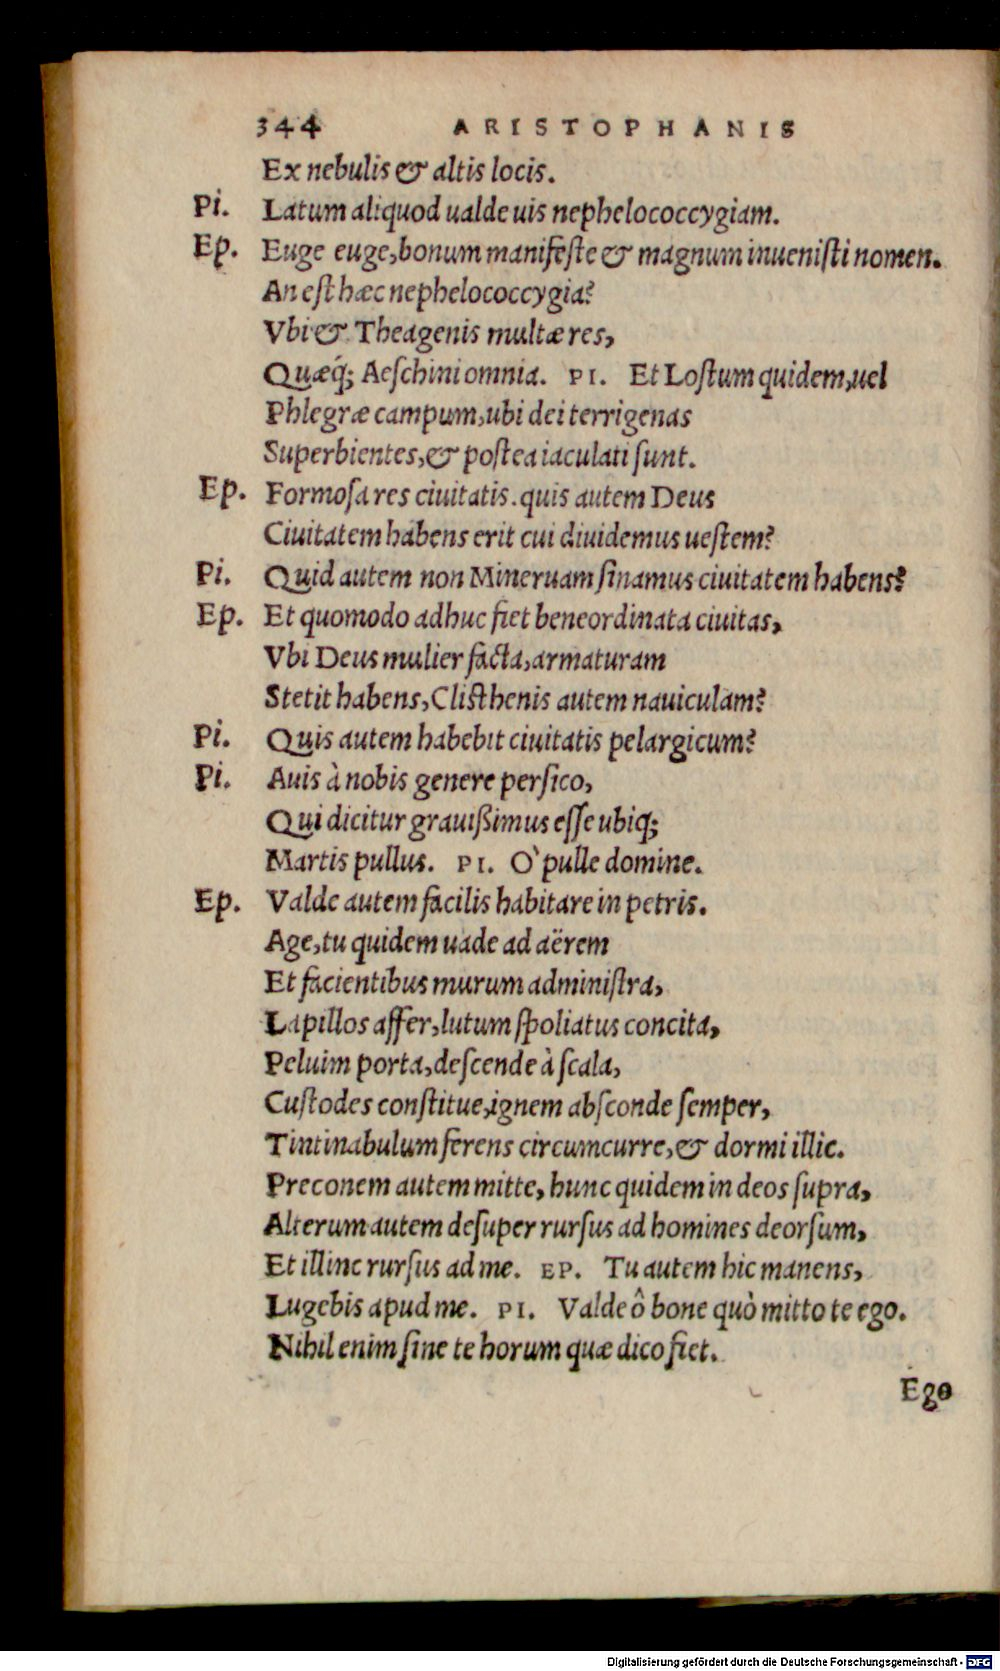 344 ARISTOPHANIS
Ex nebulis & altis locis.
Pi. Latum aliquod ualde uis nephelococcygiam.
Ep. Euge euge, bonum manifeſte & magnum inueniſti nomen.
An eſt hæc nephelococcygia?
Vbi & Theagenis multæ res,
Quæq́; Aeſchini omnia. PI. Et Loſtum quidem, uel
Phlegræ campum, ubi dei terrigenas
Superbientes, & poſtea iaculati ſunt.
Ep. Formoſa res ciuitatis. quis autem Deus
Ciuitatem habens erit cui diuidemus ueſtem?
Pi. Quid autem non Mineruam ſinamus ciuitatem habens?
Ep. Et quomodo adhuc fiet beneordinata ciuitas,
Vbi Deus mulier facta, armaturam
Stetit habens, Cliſthenis autem nauiculam?
Pi. Quis autem habebit ciuitatis pelargicum?
Pi. Auis à nobis genere perſico,
Qui dicitur grauißimus eſſe ubiq;
Martis pullus. PI. O` pulle domine.
Ep. Valde autem facilis habitare in petris.
Age, tu quidem uade ad aërem
Et facientibus murum adminiſtra,
Lapillos affer, lutum ſpoliatus concita,
Peluim porta, deſcende à ſcala,
Cuſtodes conſtitue, ignem abſconde ſemper,
Tintinabulum ferens circumcurre, & dormi illic.
Preconem autem mitte, hunc quidem in deos ſupra,
Alterum autem deſuper rurſus ad homines deorſum,
Et illinc rurſus ad me. EP. Tu autem hic manens,
Lugebis apud me. PI. Valde ô bone quò mitto te ego.
Nihil enim ſine te horum quæ dico fiet.
Ego
Digitalisierung gefördert durch die Deutsche Forschungsgemeinschaft - DFG